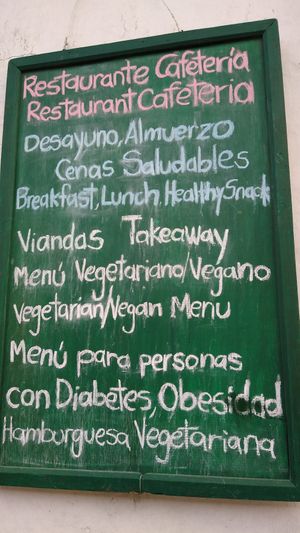 Restaurante Cafetería
Restaurant Cafeterio
Desayuno, Almuerzo
Cenas Saludables
Breakfast, Lunch, Healthy Snack
Viandas Takeaway
Menú Vegetariano/Vegano
Vegetarian/Vegan Menu
Menú para personas
con Diabetes, Obesidad
Hamburguesa Vegetariana